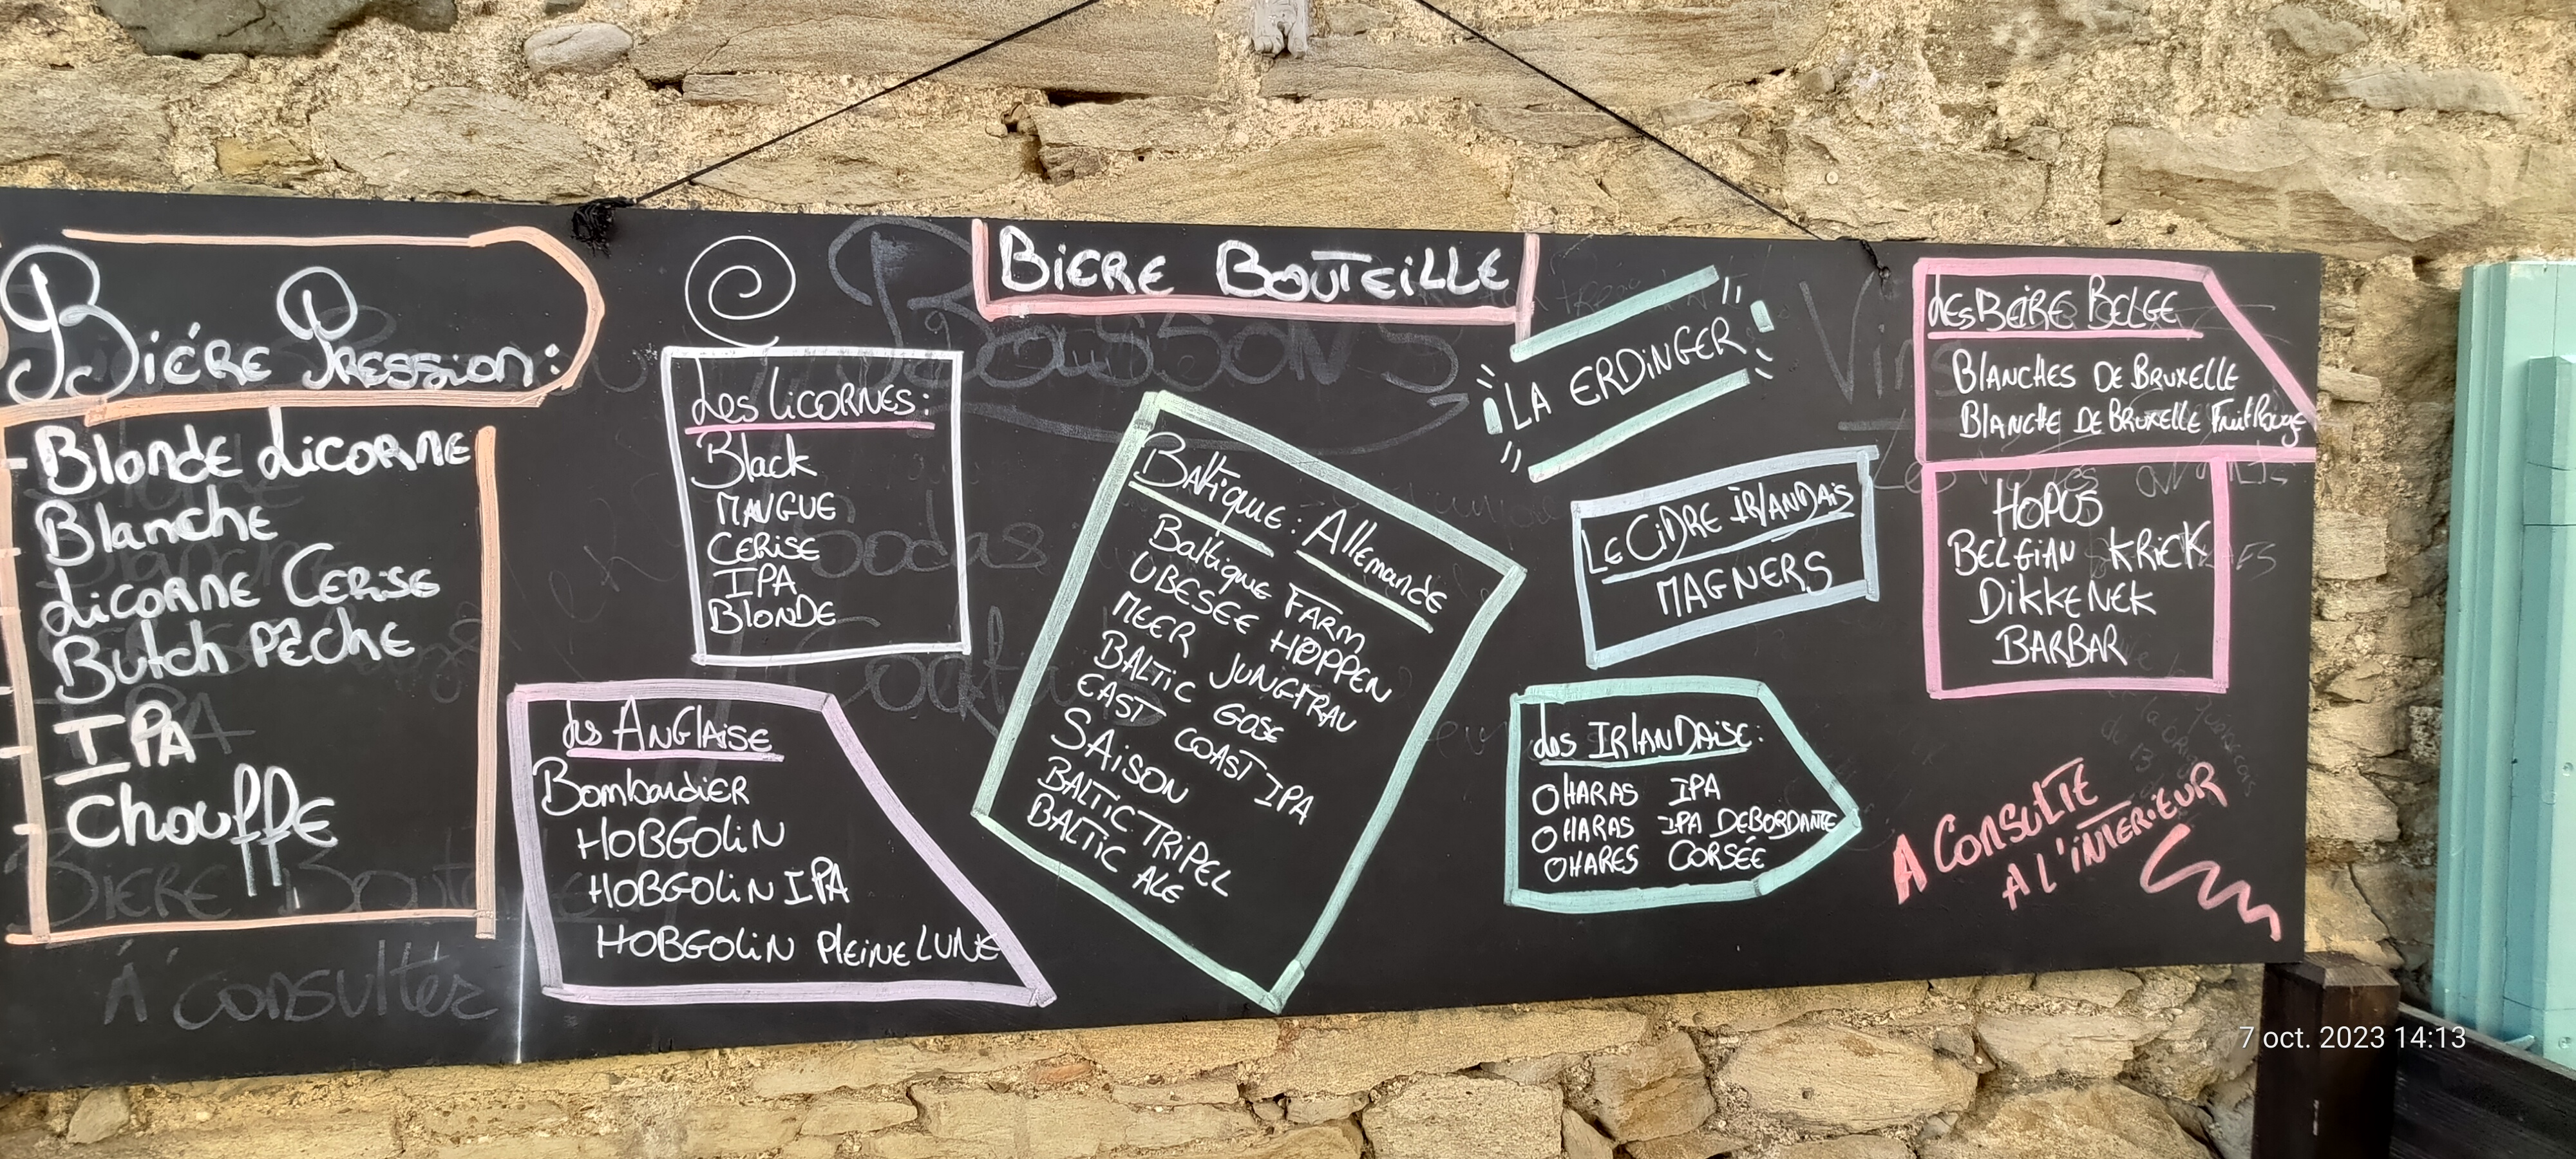 Biére Pression:
Blonde Licorne
Blanche
Licorne Cerise
Butch Pêche
IPA
Chouffe
BIERE BOUTEILLE
Les LICORNES:
Black
MANGUE
CERISE
IPA
BLONDE
des ANGLAISE
Bombardier
HOBGOLIN
HOBGOLIN IPA
HOBGOLIN PLEINE LUNE
Baltique: Allemande
Baltique FARM
UBESEE HOPPEN
MEER JUNGFRAU
BALTIC GOSE
EAST COAST IPA
SAISON
BALTIC TRIPEL
BALTIC ALE
LA ERDINGER
LE CIDRE IRLANDAIS
MAGNERS
des IRLANDAISE:
OHARAS IPA
OHARAS IPA DEBORDANTE
OHARES CORSÉE
LES BEIRE BELGE
BLANCHES DE BRUXELLE
BLANCHE DE BRUXELLE Fruit Rouge
HOPUS
BELGIAN KRIEK
DIKKENEK
BARBAR
A CONSULTE
A L'INTERIEUR
Boissons
Vins
Sodas
Cocktails
À consulter
7 oct. 2023 14:13